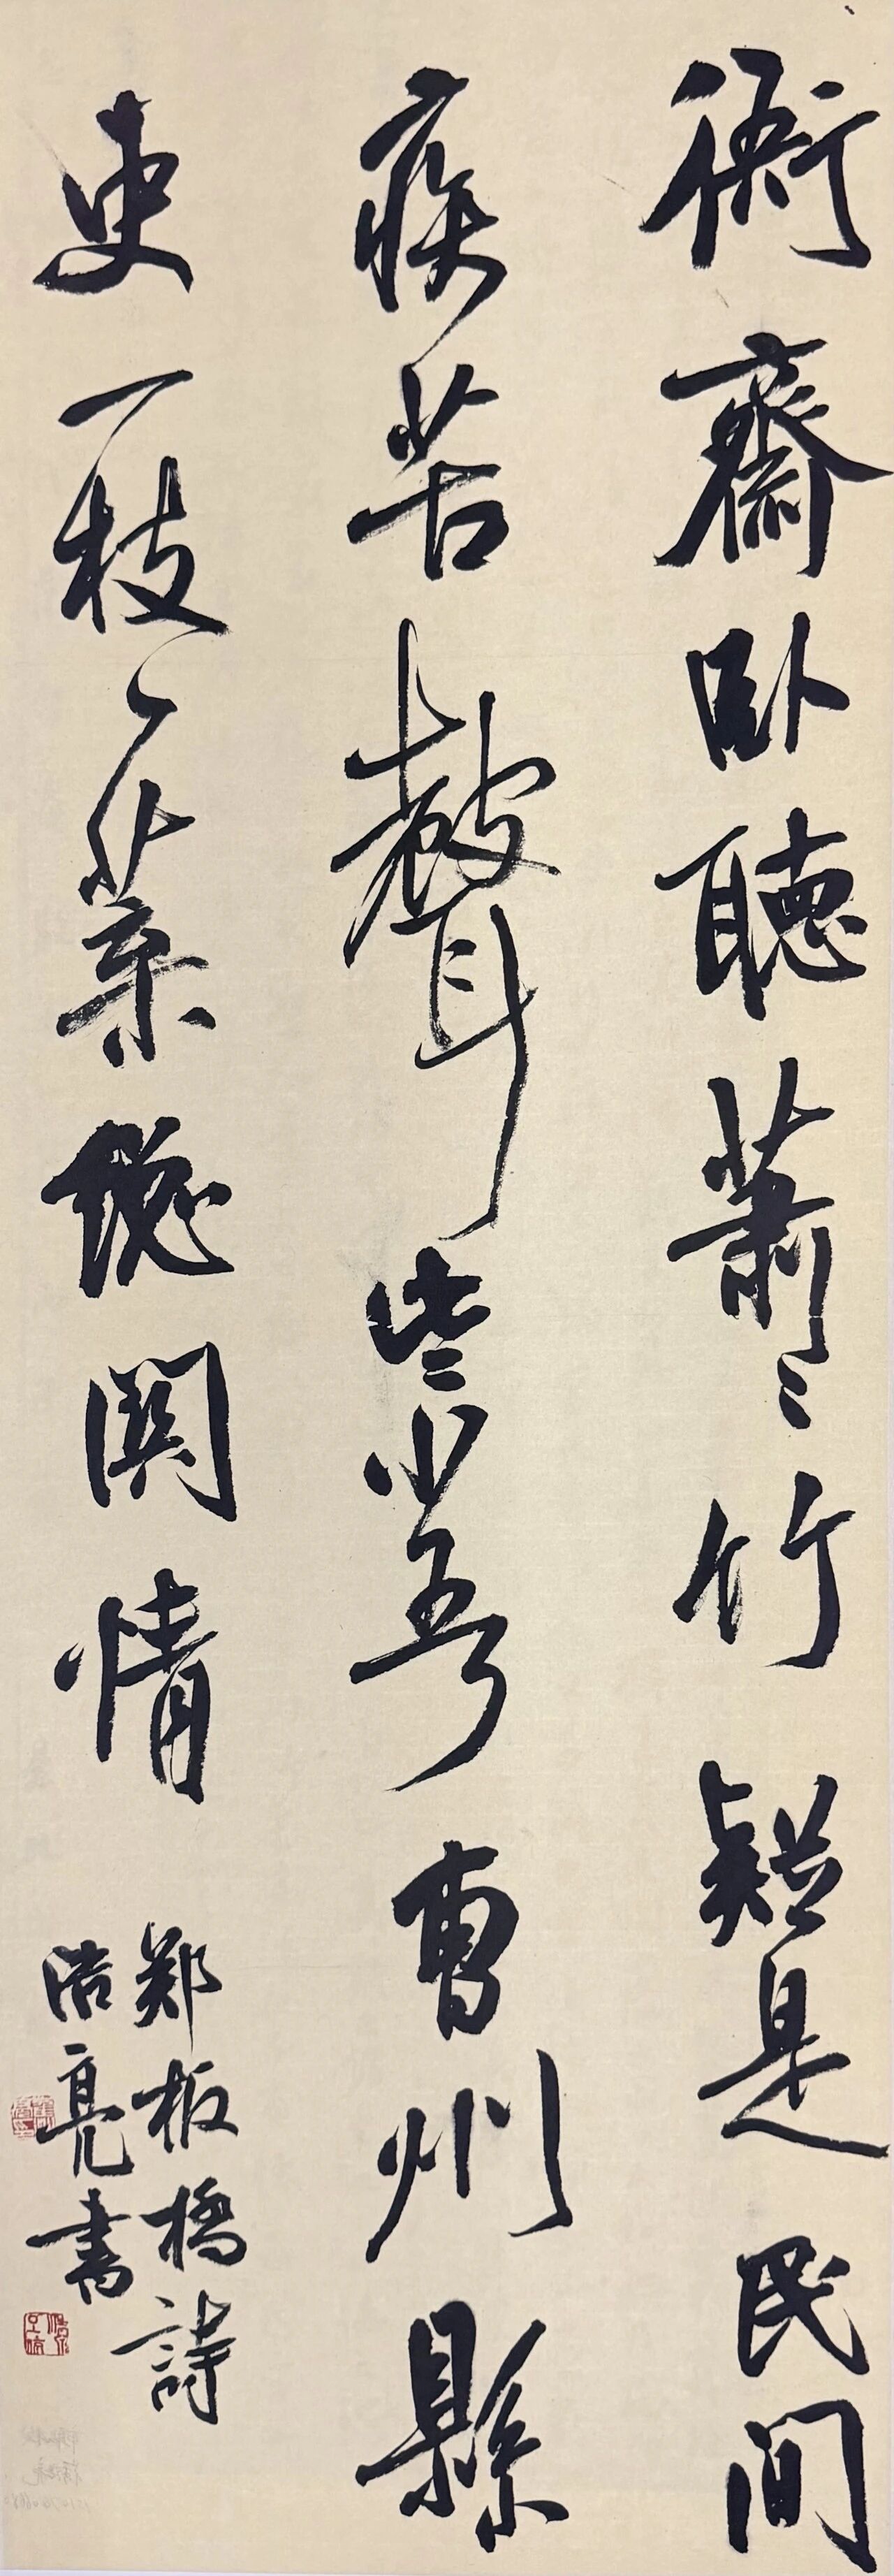 衙齋卧聽蕭〻竹疑是民间
疾苦聲些小吾曹州縣
吏一枝一葉總関情
郑板橋詩
浩亮書